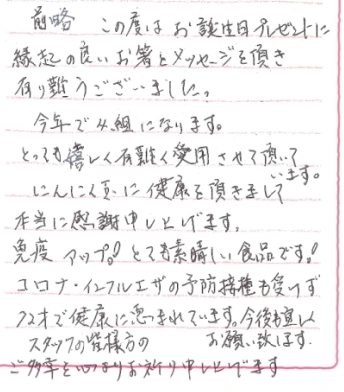 前略 この度は お誕生日プレゼントに
縁起の良いお箸とメッセージを頂き
有り難うございました。
今年で4組になります。
とっても嬉しく有難く愛用させて頂いて
います。
にんにく玉に健康を頂きまして
本当に感謝申し上げます。
免疫アップ!とても素晴しい食品です!
コロナ・インフルエザの予防接種も受けず
72才で健康に恵まれています。今後も宜しく
お願い致します。
スタッフの皆様方の
ご多幸を心よりお祈り申し上げます